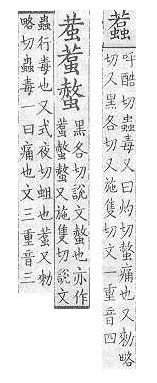 呼酷切蟲毒又曰灼切螫痛也又勑略
切又黑各切又施隻切文一重音四
蠚螫
黑各切說文螫也亦作
蠚螫螫又施隻切說文
蟲行毒也又式夜切蛆也螫又勑
略切蟲毒一曰痛也文三重音三